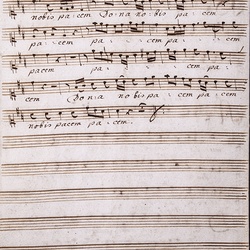 nobis pacem Dona nobis pa cem
pa cem pa cem
pacem pa cem pa
cem Dona nobis pa cem pa cem
nobis pacem pa cem.